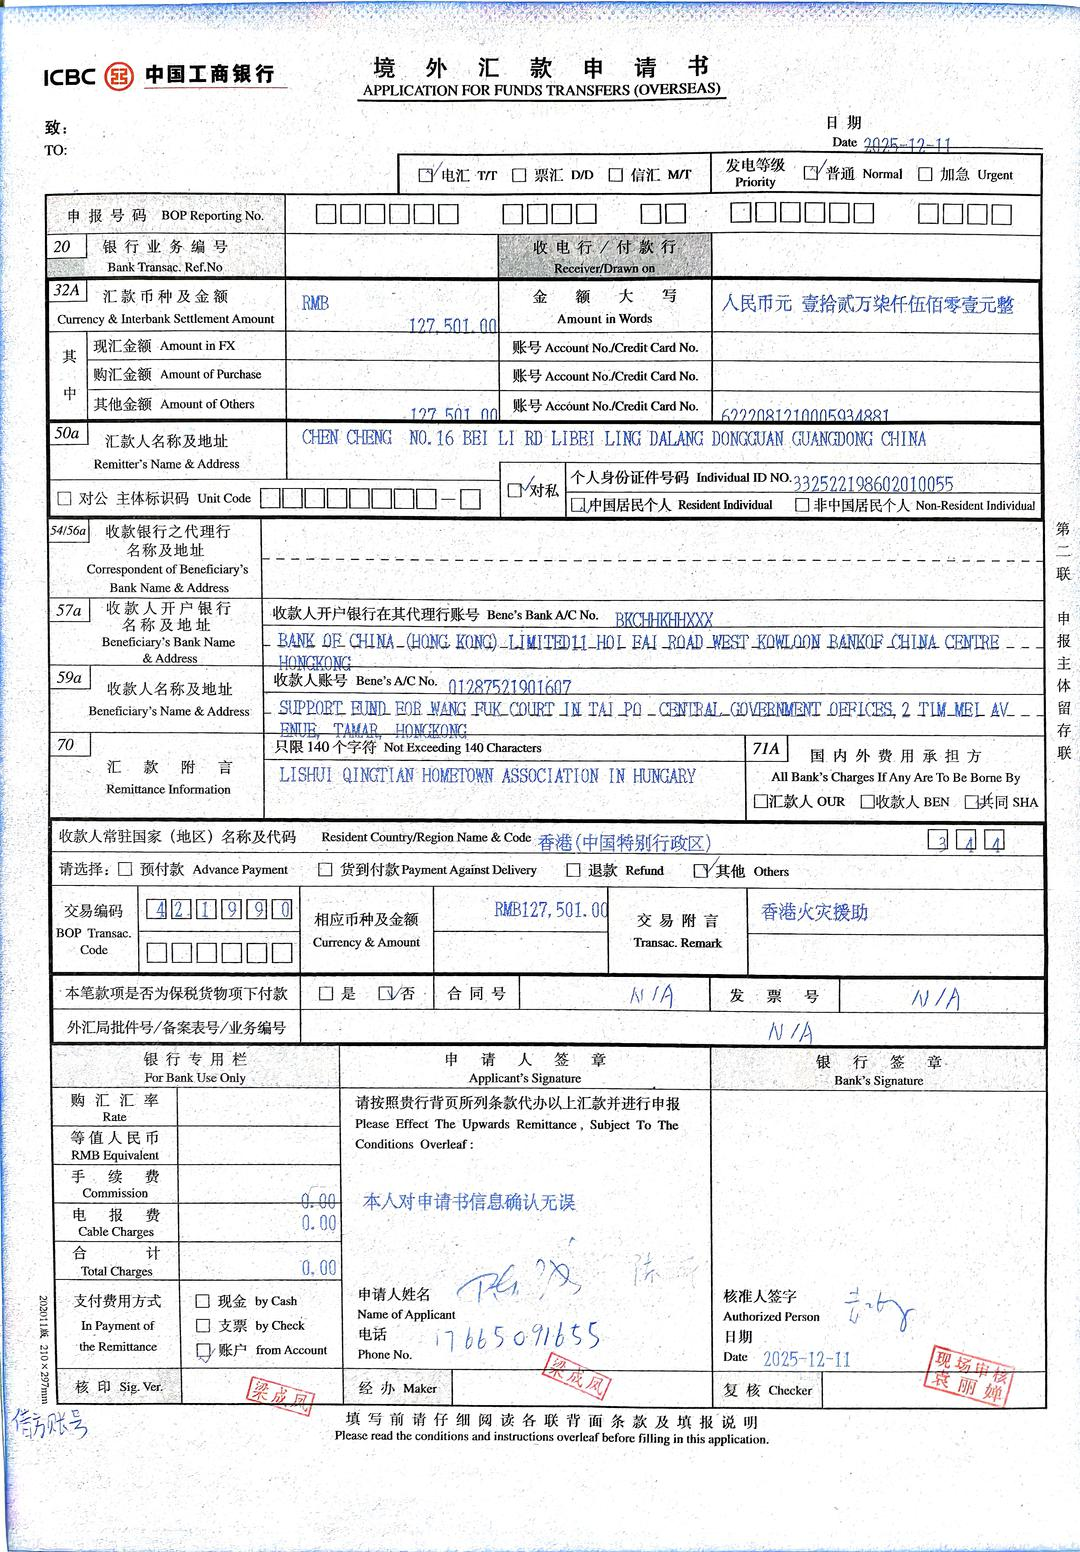 ICBC 中国工商银行
境外汇款申请书
APPLICATION FOR FUNDS TRANSFERS (OVERSEAS)
致：
TO:
日期
Date 2025-12-11
电汇 T/T 票汇 D/D 信汇 M/T 发电等级 Priority 普通 Normal 加急 Urgent
申报号码 BOP Reporting No.
20 银行业务编号 Bank Transac. Ref.No 收电行/付款行 Receiver/Drawn on
32A 汇款币种及金额 Currency & Interbank Settlement Amount RMB 127,501.00 金额大写 Amount in Words 人民币元 壹拾贰万柒仟伍佰零壹元整
其中 现汇金额 Amount in FX 账号 Account No./Credit Card No.
购汇金额 Amount of Purchase 账号 Account No./Credit Card No.
其他金额 Amount of Others 127,501.00 账号 Account No./Credit Card No. 6222081210005934881
50a 汇款人名称及地址 Remitter's Name & Address CHEN CHENG NO.16 BEI LI RD LIBEI LING DALANG DONGGUAN GUANGDONG CHINA
对公 主体标识码 Unit Code 对私 个人身份证件号码 Individual ID NO. 332522198602010055
中国居民个人 Resident Individual 非中国居民个人 Non-Resident Individual
54/56a 收款银行之代理行名称及地址
Correspondent of Beneficiary's Bank Name & Address
57a 收款人开户银行名称及地址 Beneficiary's Bank Name & Address
收款人开户银行在其代理行账号 Bene's Bank A/C No. BKCHHKHHXXX
BANK OF CHINA (HONG KONG) LIMITED11 HOI FAI ROAD WEST KOWLOON BANKOF CHINA CENTRE
HONGKONG
59a 收款人名称及地址 Beneficiary's Name & Address
收款人账号 Bene's A/C No. 01287521901607
SUPPORT FUND FOR WANG FUK COURT IN TAI PO CENTRAL GOVERNMENT OFFICES, 2 TIM MEI AV
ENUE, TAMAR, HONGKONG
70 汇款附言 Remittance Information
只限140个字符 Not Exceeding 140 Characters
LISHUI QINGTIAN HOMETOWN ASSOCIATION IN HUNGARY
71A 国内外费用承担方
All Bank's Charges If Any Are To Be Borne By
汇款人 OUR 收款人 BEN 共同 SHA
收款人常驻国家（地区）名称及代码 Resident Country/Region Name & Code 香港(中国特别行政区) 3 4 4
请选择： 预付款 Advance Payment 货到付款 Payment Against Delivery 退款 Refund 其他 Others
交易编码 BOP Transac. Code 4 2 1 9 9 0 相应币种及金额 Currency & Amount RMB127,501.00 交易附言 Transac. Remark 香港火灾援助
本笔款项是否为保税货物项下付款 是 否 合同号 N/A 发票号 N/A
外汇局批件号/备案表号/业务编号 N/A
银行专用栏 For Bank Use Only 申请人签章 Applicant's Signature 银行签章 Bank's Signature
购汇汇率 Rate
等值人民币 RMB Equivalent
手续费 Commission 0.00
电报费 Cable Charges 0.00
合计 Total Charges 0.00
支付费用方式
In Payment of the Remittance
现金 by Cash
支票 by Check
账户 from Account
请按照贵行背页所列条款代办以上汇款并进行申报
Please Effect The Upwards Remittance, Subject To The
Conditions Overleaf:
本人对申请书信息确认无误
申请人姓名
Name of Applicant
电话 Phone No. 17665091655
核准人签字
Authorized Person
日期
Date 2025-12-11
核印 Sig. Ver. 梁成凤 经办 Maker 梁成凤 复核 Checker 现场审核 袁丽婵
填写前请仔细阅读各联背面条款及填报说明
Please read the conditions and instructions overleaf before filling in this application.
第二联 申报主体留存联
202011版 210×297mm
借方账号